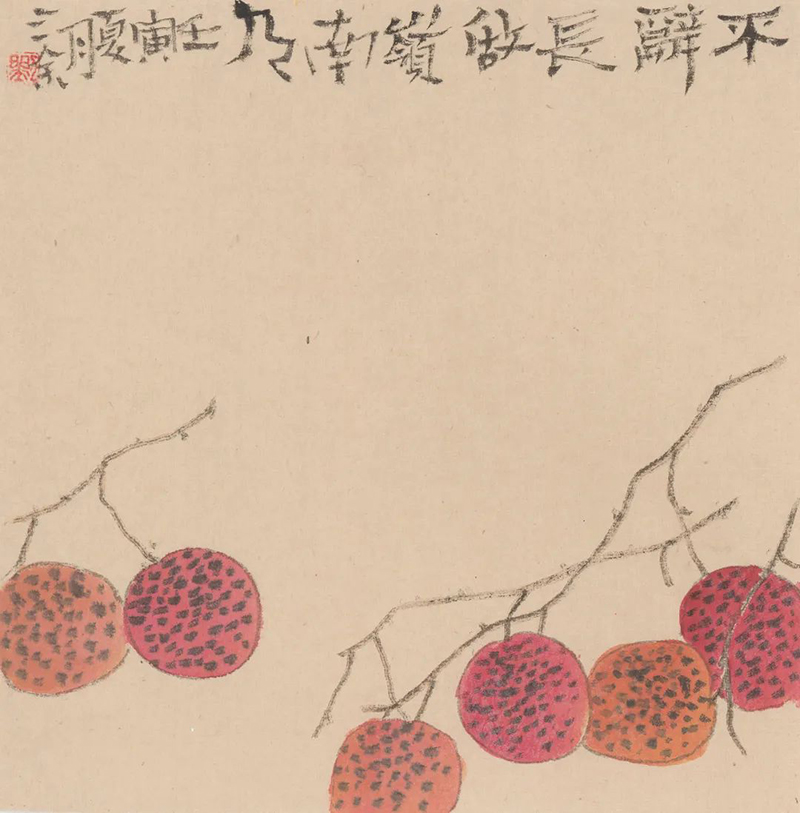 不辭長做嶺南人壬寅夏月三余